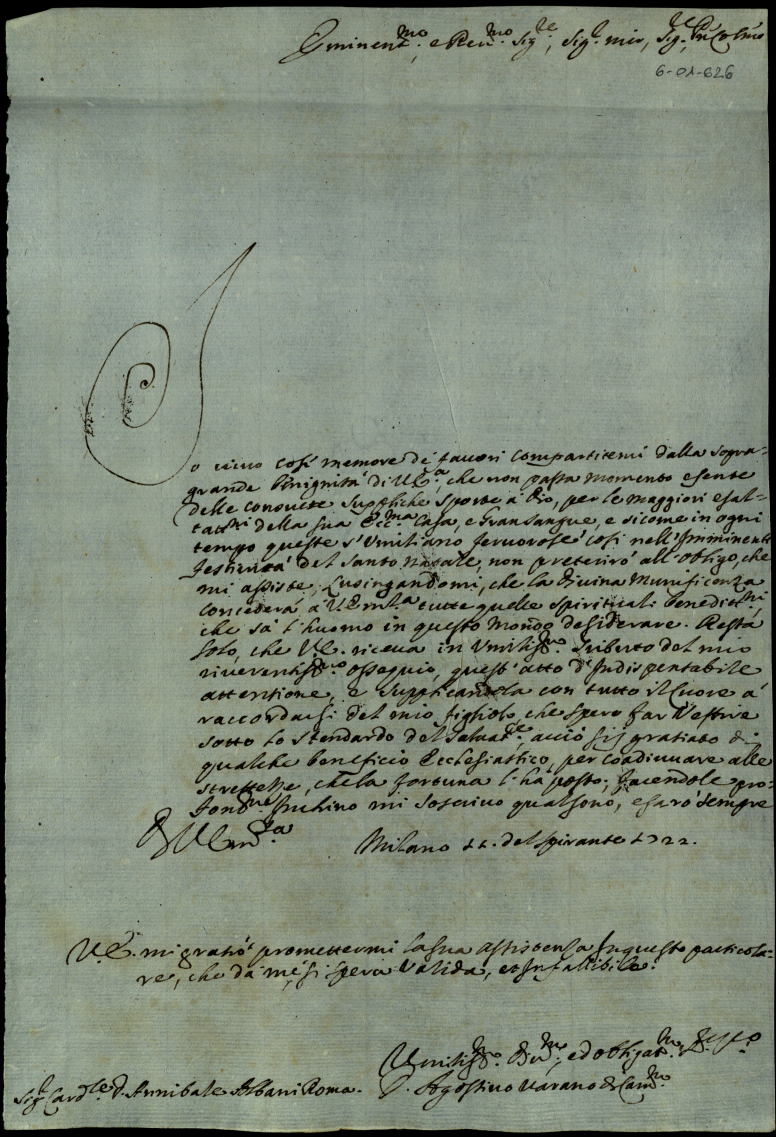 Eminent.mo, e Reu.mo Sig.re, Sig.r mio, Sig.re, P'ron Col.mo
6-01-626
Io viuo così memore de' fauori compartitemi dalla sopra-
grande Benignità di V.E.a, che non passa momento esente
delle conuete suppliche sporte à Dio, per le maggiori esal-
tat.ni della sua Ecc.ma Casa, e Gran Sangue, e sicome in ogni
tempo queste s'Vmiliano feruorose così nell'Imminente
Festiuità del Santo Natale, non preterirò all'obligo, che
mi assiste, Lusingandomi, che la Diuina Munificenza
concederà à V.Em.a tutte quelle spirituali benedict.ni,
che sà l'huomo in questo Mondo desiderare. Resta
solo, che V.E. riceua in Vmiliss.mo Tributo del mio
riuerentiss.mo ossequio, quest'atto d'Indispensabile
attentione, e supplicandola con tutto il Cuore à
raccordarsi del mio figliolo, che spero far Vestire
sotto lo stendardo del Saluat.re, acciò sij gratiato di
qualche beneficio Ecclesiastico, per coadiuuare alle
strettesse, che la fortuna l'hà posto; facendole pro-
fond.me Inchino mi soscriuo qual sono, e sarò sempre
D V Em.za
Milano 11. del spirante 1722.
V.E. mi gratij promettermi la sua assistenza In questo particola-
re, che da me, si spera Valida, et Infallibile.
Vmiliss.mo Diu.mo, ed obligat.mo
D. Agostino Varano di Cam.no
Sig.r Card.le D. Annibale Albani Roma.